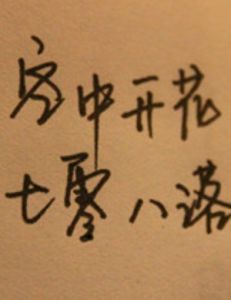 空中开花
七零八落